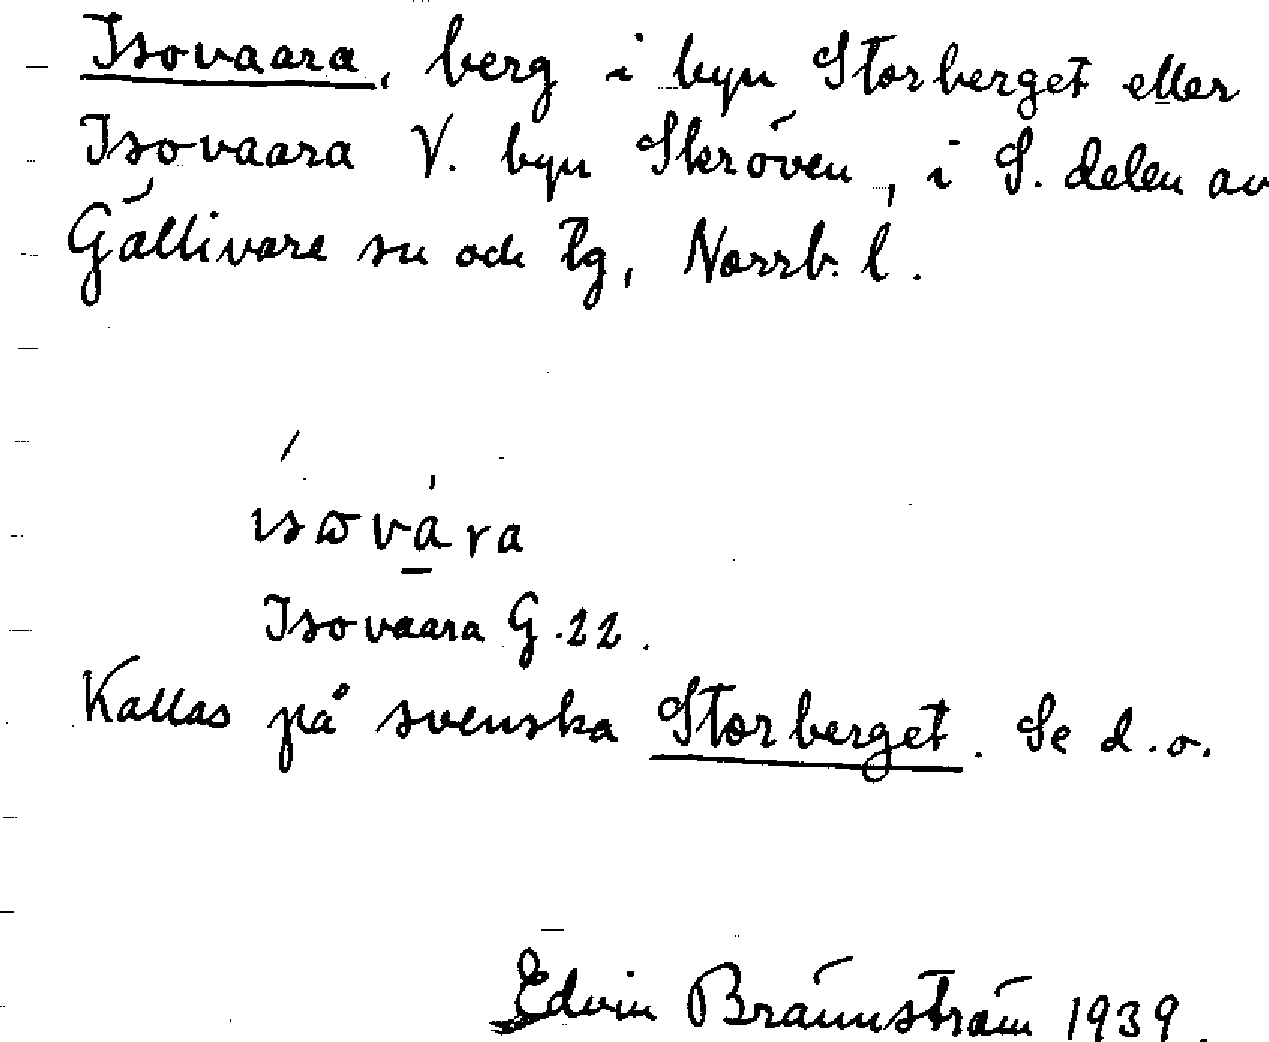 Isovaara, berg i byn Storberget eller
Isovaara V. byn Skröven, i S. delen av
Gällivare sn och tg, Norrb. l.
Isovaara G. 22.
Kallas på svenska Storberget. Se d. o.
Edvin Brännström 1939.